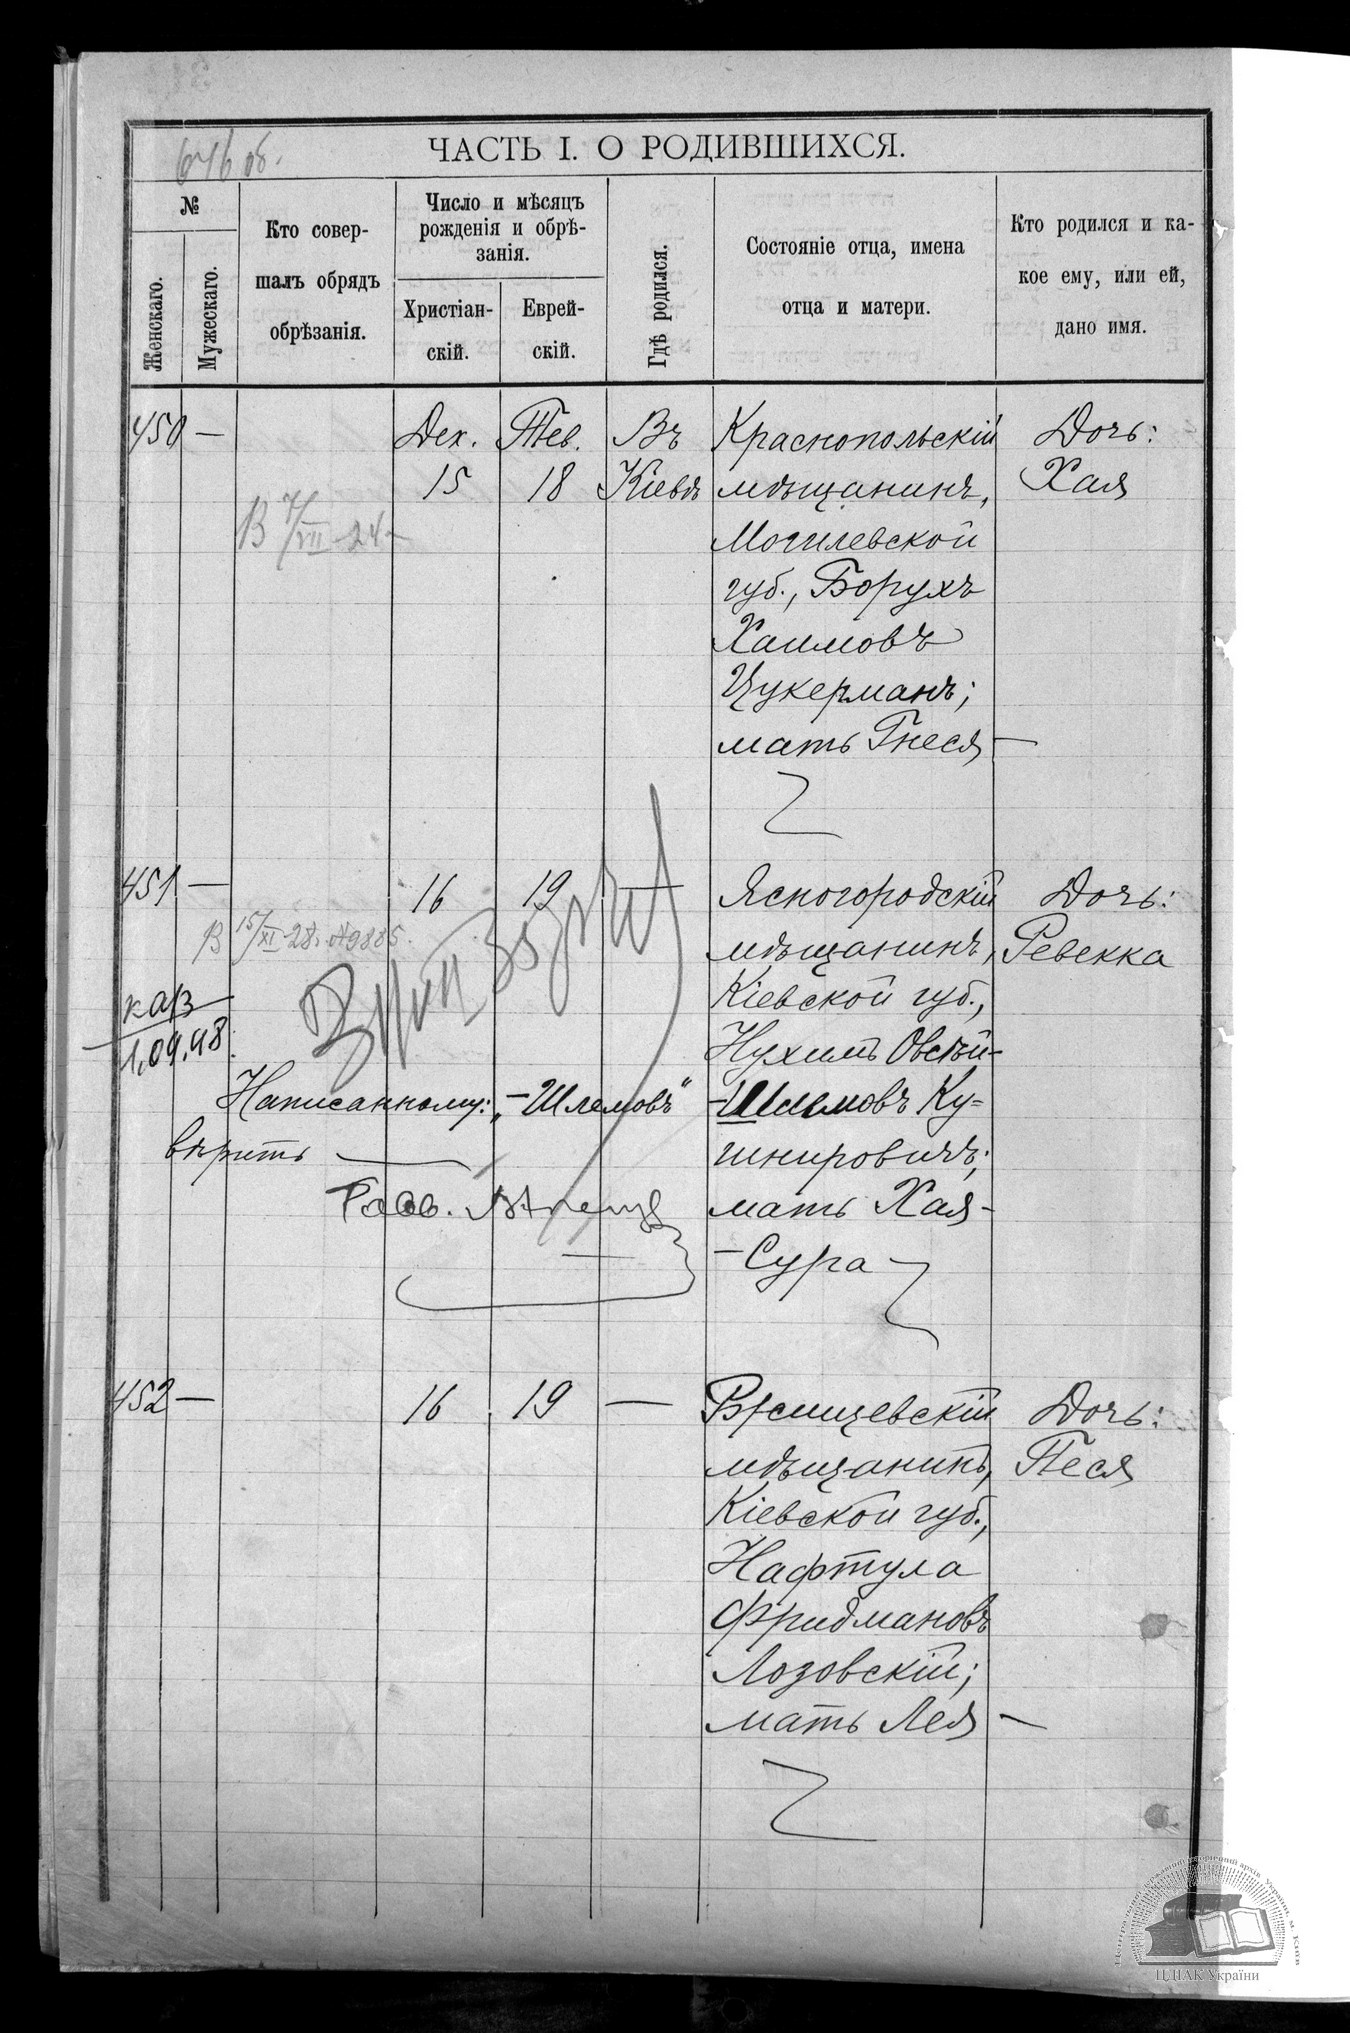 646 об.
ЧАСТЬ I. О РОДИВШИХСЯ.
№
Женскаго.
Мужескаго.
Кто совер-
шалъ обрядъ
обрѣзанія.
Число и мѣсяцъ
рожденія и обрѣ-
занія.
Христіан-
скій.
Еврей-
скій.
Гдѣ родился.
Состояніе отца, имена
отца и матери.
Кто родился и ка-
кое ему, или ей,
дано имя.
450 —
Дек.
15
Тев.
18
Въ
Кіевѣ
Краснопольскій
мѣщанинъ,
Могилевской
губ., Борухъ
Хаимовъ
Цукерманъ;
мать Гнеся —
Дочь:
Хая
В 7/VII 24
451 —
16
19
—
Ясногородскій
мѣщанинъ,
Кіевской губ.,
Нухимъ Овсѣй-
-Шлемовъ Ку=
шнировичъ;
мать Хая-
-Сура
Дочь:
Ревекка
В 15/XI 28. №9885.
1.09.48
Написанному: „-Шлемовъ"
вѣрить —
452 —
16
19
—
Ржищевскій
мѣщанинъ,
Кіевской губ.,
Нафтула
Фридмановъ
Лозовскій;
мать Лея —
Дочь:
Песя
ЦДІАК України